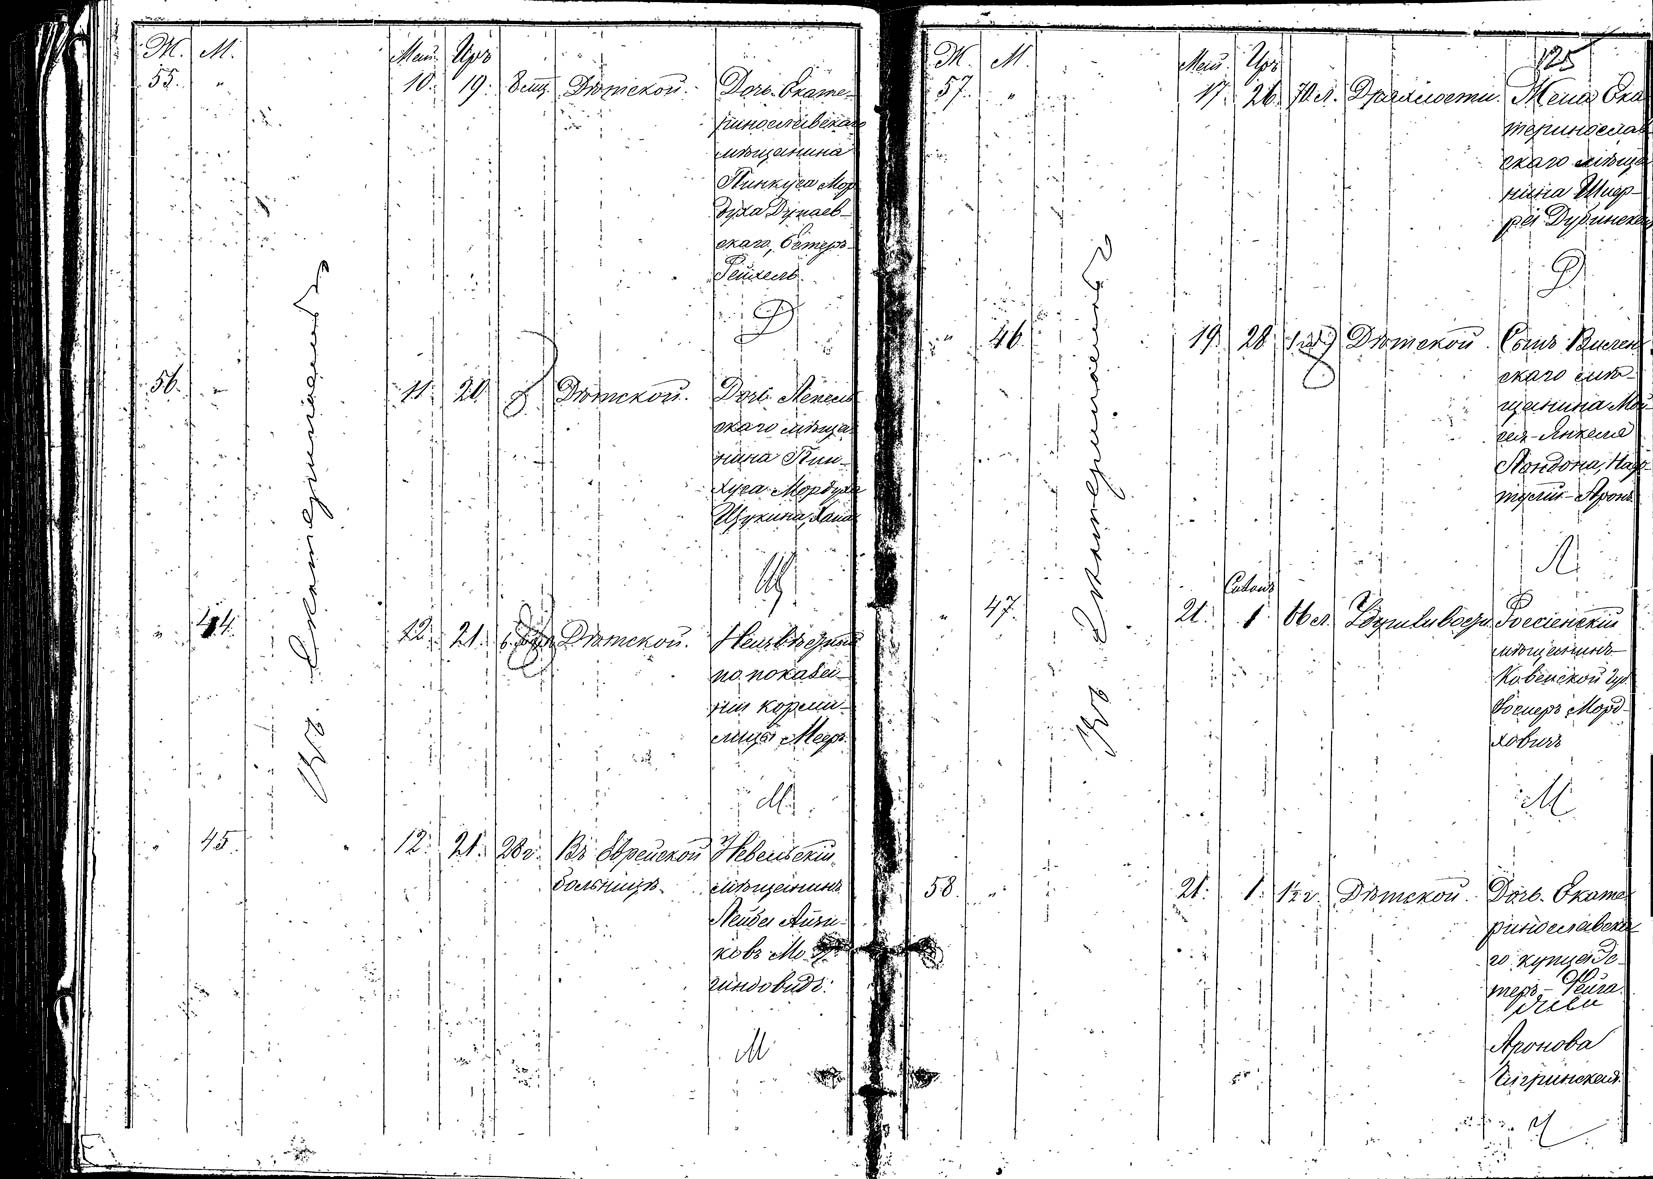 Ж. М. Май Iръ
55. " 10. 19. 8 мц. Дѣтской. Дочь Екате-
ринославскаго
мѣщанина
Пинкуса Мор
духа Дунаев-
скаго, Естеръ-
Рейхель
Д
56. " 11. 20. Дѣтской. Дочь Лепель
скаго мѣща
нина Пин-
хуса Мордуха
Щукина, Хана
Щ
" 44. 12. 21. Дѣтской. Неизвѣстный
по показа
нiи корми-
лицы Мееръ
М
" 45. 12. 21. 28 г. Въ Еврейской Невельскiй
больницѣ. мѣщанинъ
Лейба Айзи-
ковъ
М
Въ Екатеринославѣ
125
Ж. М. Май Iръ
57. " 17. 26. 70 л. Дряхлости. Жена Ека
теринослав
скаго мѣща
нина Шнер-
рея Дубинская
Д
" 46. 19. 28 1 год Дѣтской. Сынъ Вилен
скаго мѣ-
щанина Мов
ся-Янкеля
Лондона, Наф-
тулiй-Аронъ
Л
Сиванъ
" 47. 21. 1 66 л. Удушливости Россiенскiй
мѣщанинъ
Ковенской гу.
Iосперъ Морд-
ховичъ
М
58. " 21. 1. 1½ г. Дѣтской. Дочь Екате
ринославска
го купца Эс-
теръ-Фейга
Аронова
Чигринская
Ч
Въ Екатеринославѣ